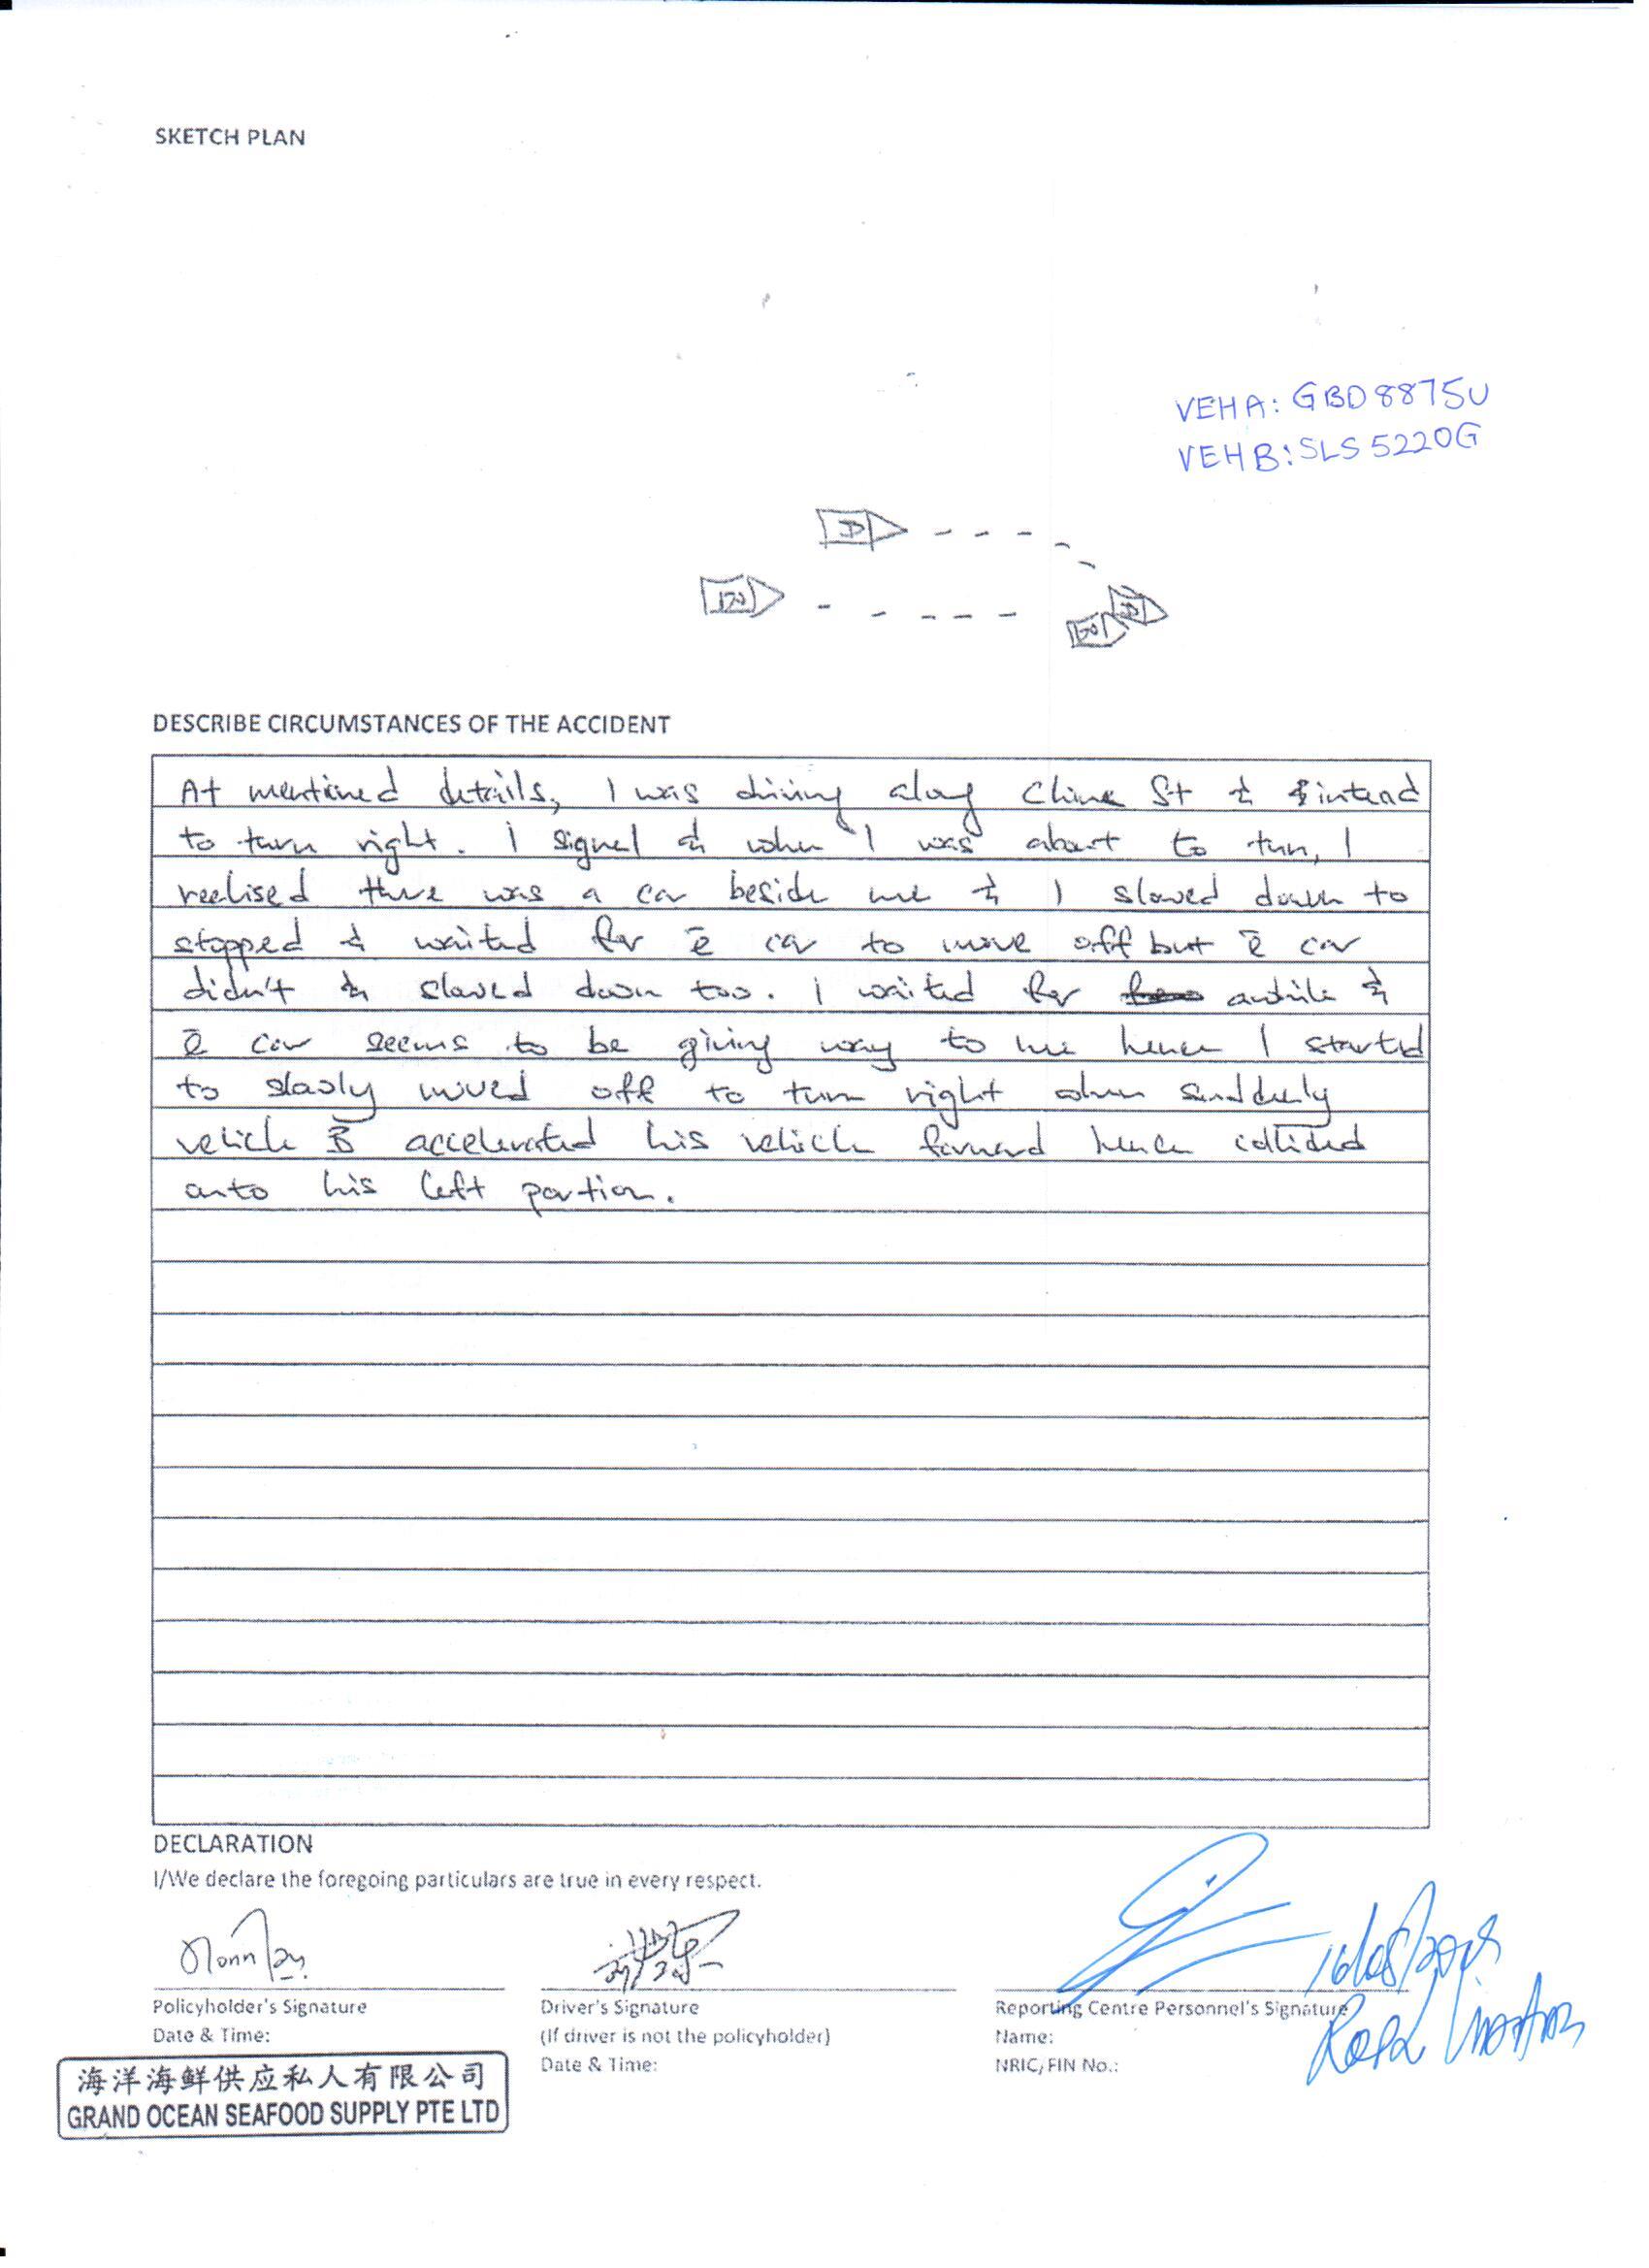 SKETCH PLAN
VEH A: GBD8875U
VEH B: SLS5220G
DESCRIBE CIRCUMSTANCES OF THE ACCIDENT
At mentioned details, I was driving along China St & intend
to turn right. I signal & when I was about to turn, I
realised there was a car beside me & I slowed down to
stopped & waited for ē car to move off but ē car
didn't & slowed down too. I waited for awhile &
ē car seems to be giving way to me hence I started
to slowly moved off to turn right when suddenly
vehicle B accelerated his vehicle forward hence collided
onto his left portion.
DECLARATION
I/We declare the foregoing particulars are true in every respect.
Policyholder's Signature
Date & Time:
Driver's Signature
(If driver is not the policyholder)
Date & Time:
Reporting Centre Personnel's Signature
Name:
NRIC/FIN No.:
海洋海鲜供应私人有限公司
GRAND OCEAN SEAFOOD SUPPLY PTE LTD